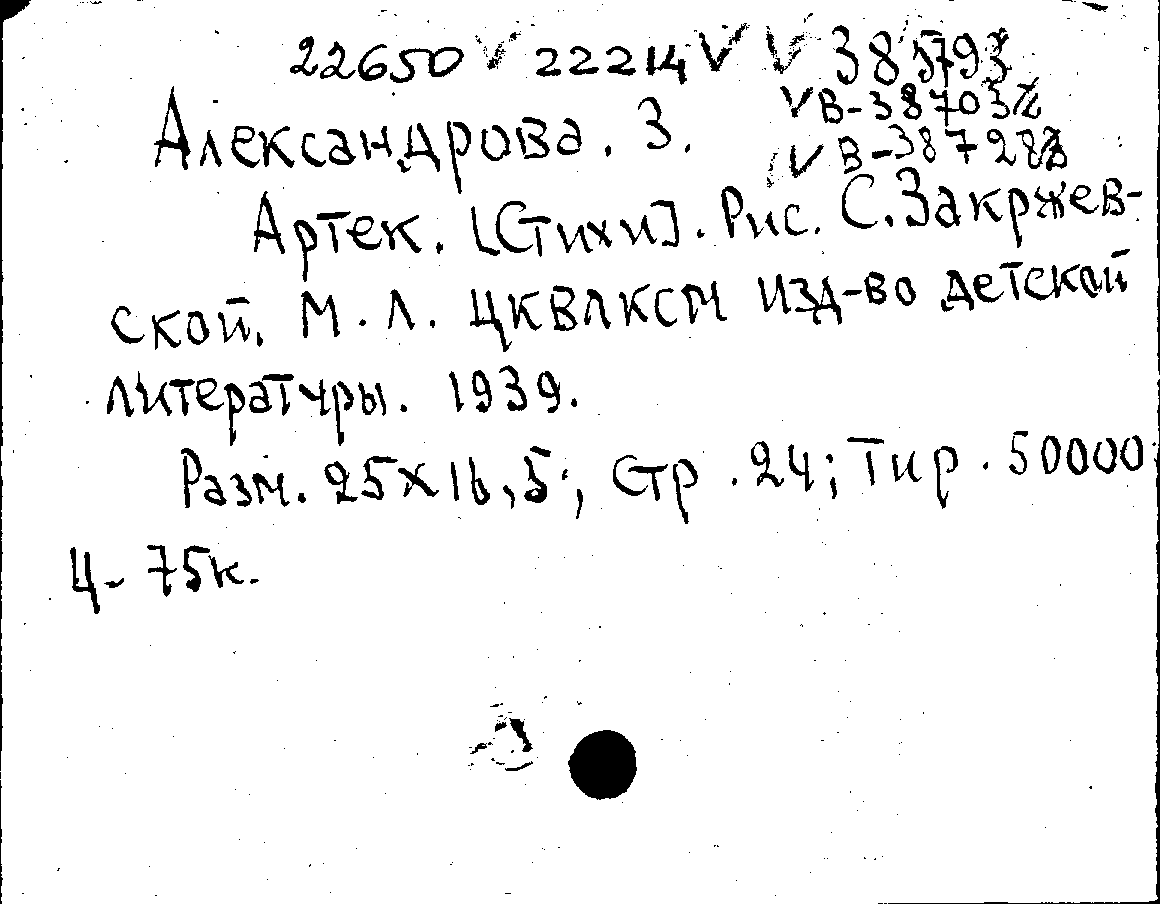 22650 V 22214 V V 38579З
Александрова. З. VВ-38703
V В-38728
Артек. [Стихи]. Рис. С. Закржев-
ской. М. Л. ЦКВЛКСМ изд-во детской
литературы. 1939.
Разм. 25х16,5; стр. 24; Тир. 50000
Ц- 75к.